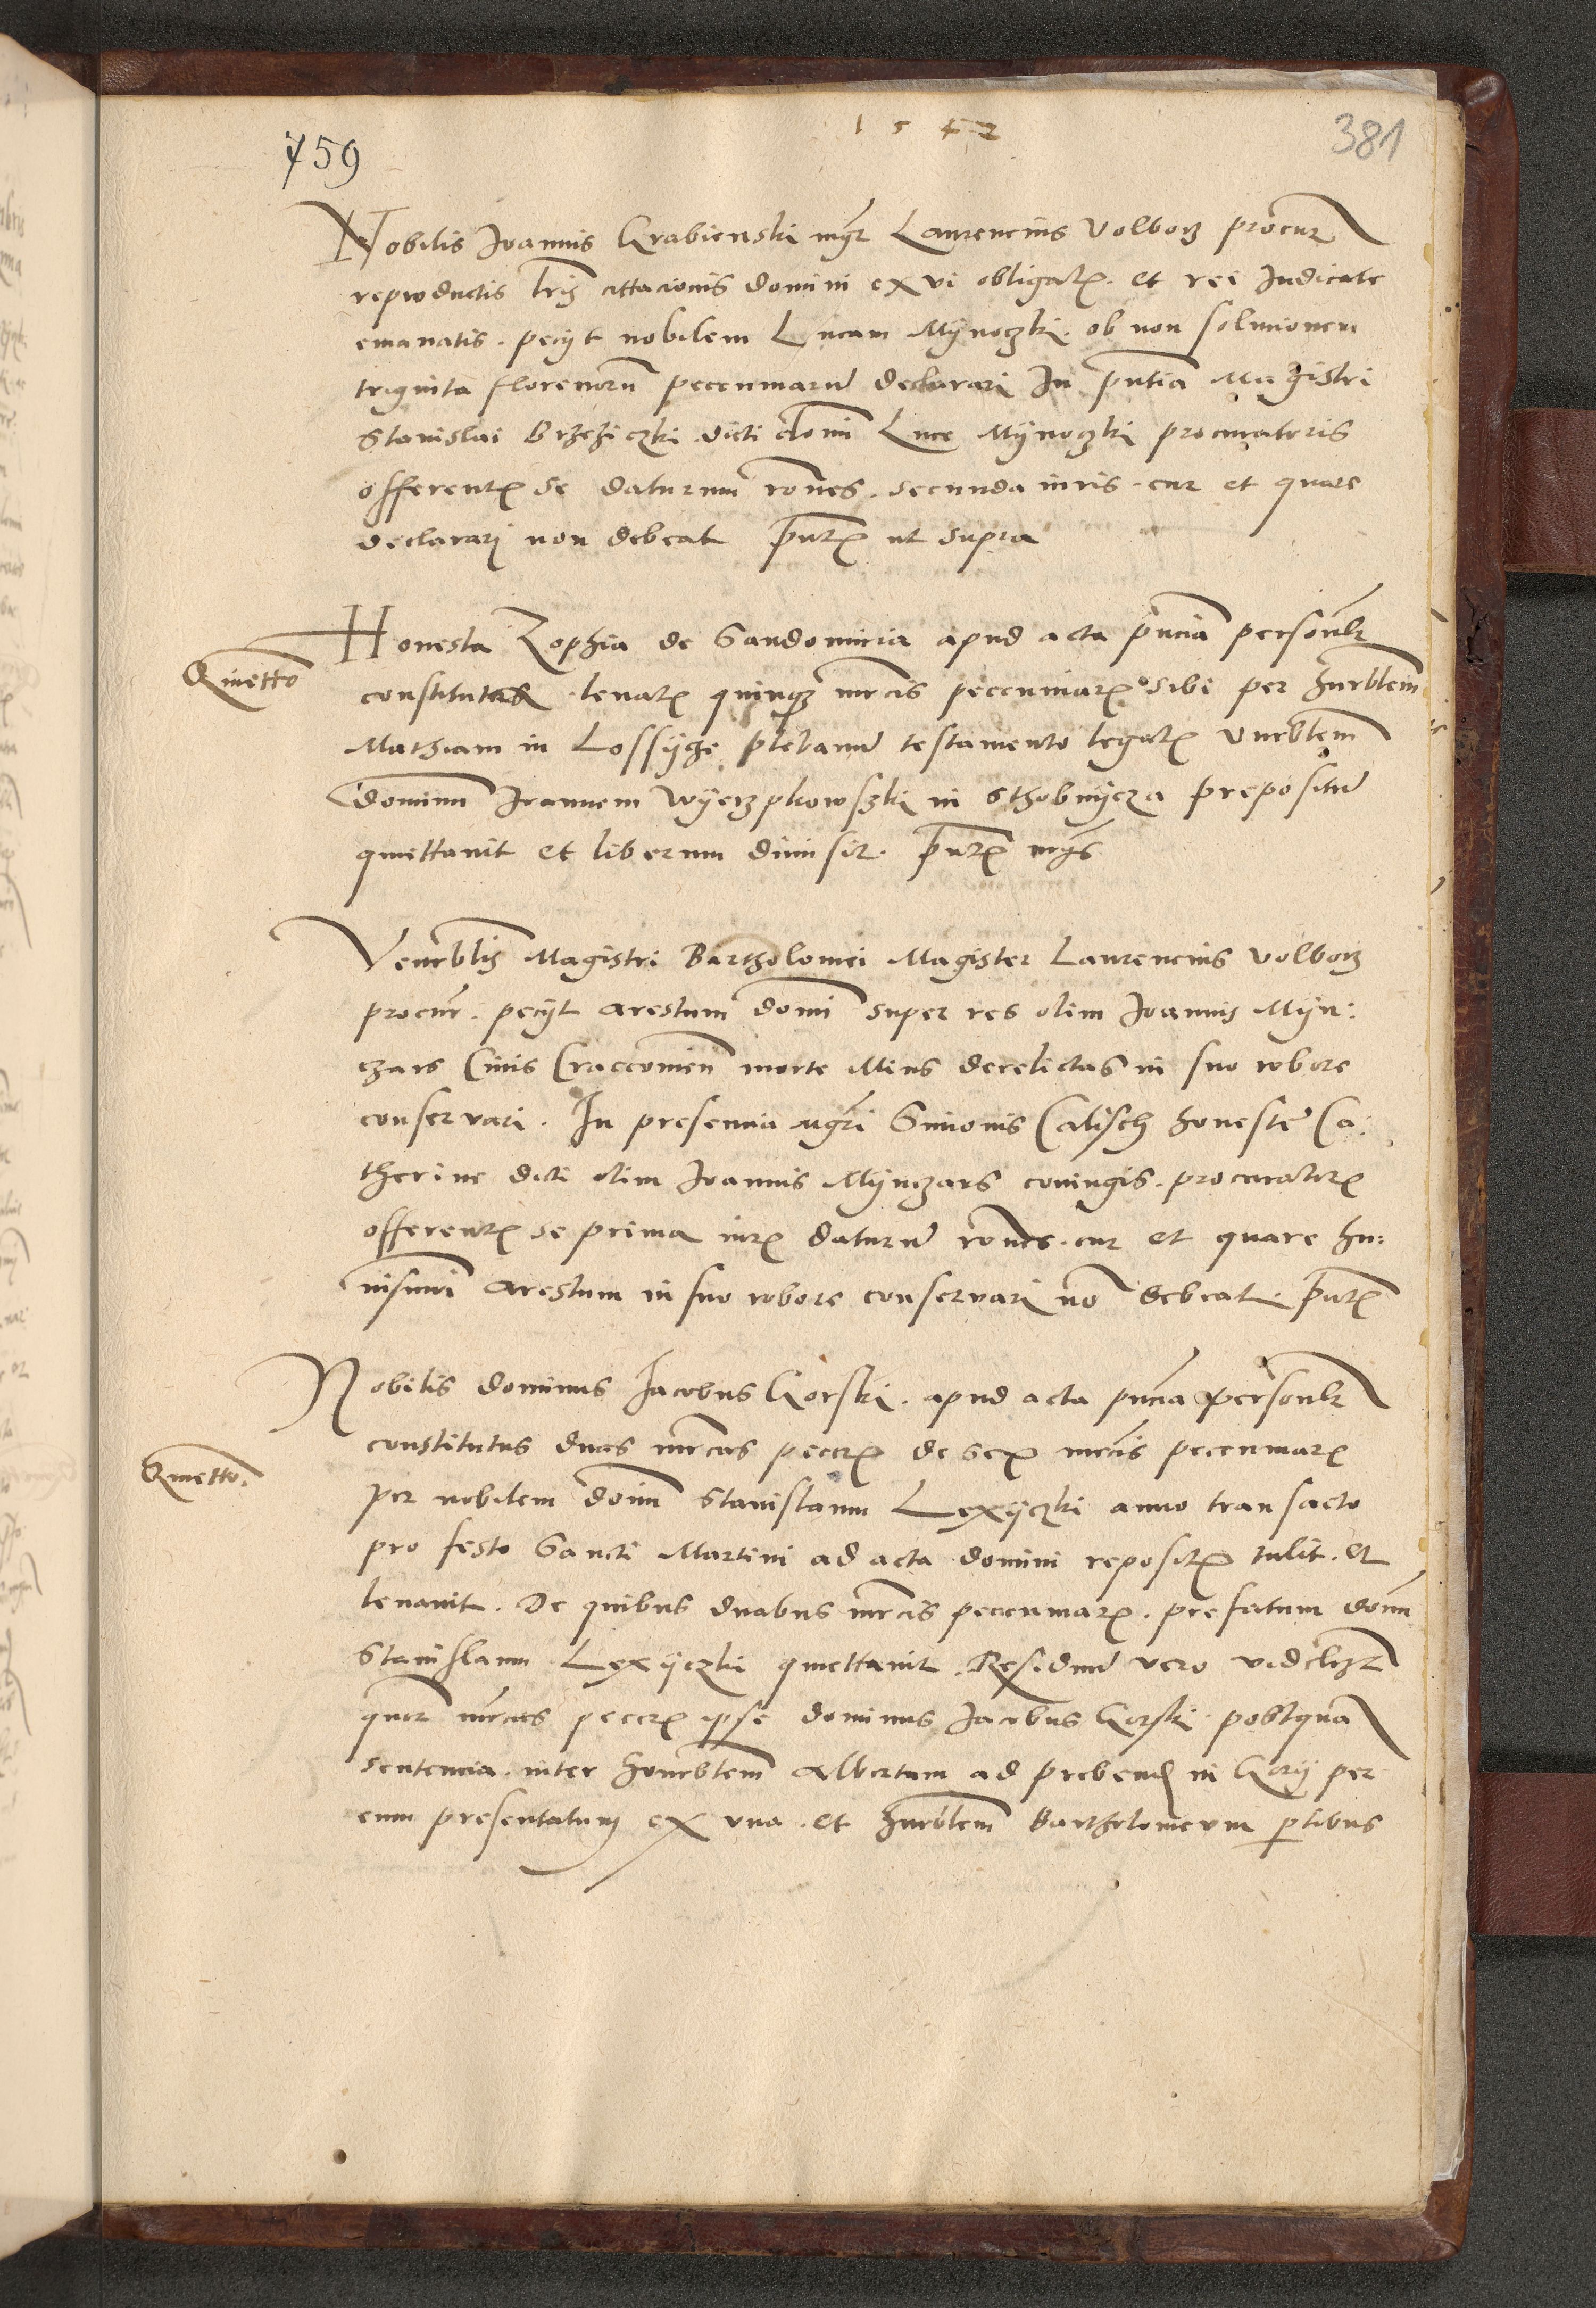 1 5 4 2
759
381
Nobilis Joannis Grabienski mgr Laurencius Volborz procur
reproductis lris cittacionis domini ex vi obligat. et rei Judicate
emanatis. pecyt nobilem Lucam Mynoczki. ob non solucionem
triginta florenorum pecuniarum declarari In pntia Magistri
Stanislai Brzeziczki dicti domi Luce Mynoczki procuratoris
offerent se daturum rones. secunda iuris. cur et quare
declarari non debeat pntt ut supra
Honesta Zophia de Sandomiria apud acta pncia personlr
Quietto
constituta levat quinqz mrcis pecuniar sibi per honrblem
Mathiam in Lossycze plebanum testamento legat Vnrblem
dominum Joannem Wyerzpkowszki in Sthobnycza prepositum
quiettavit et liberum dimisit. pntt mgris
Venrblis Magistri Bartholomei Magister Laurencius Volborz
procur. pecyt arestum domi super res olim Joannis Myn:
czars Civis Craccovien morte Mius derelictas in suo robore
conservari. In presencia Mgri Simonis Calisch honeste Ca:
therine dicti olim Joannis Mynczars coniugis. procurator
offerent se prima iur daturum rones. cur et quare hu:
iusmoi arestum in suo robore conservari no debeat. pntt
Nobilis dominus Jacobus Gorski. apud acta pncia personlr
constitutus duas mrcas peccar de sex mrcis pecuniar
Quietto.
per nobilem domi Stanislaum Lexyczki anno transacto
pro festo Sancti Martini ad acta domini reposit tulit. et
levavit. De quibus duabus mrcis pecuniar. prefatum domi
Stanislaum Lexyczki quiettavit. Residuum vero videlizt
quor mrcas peccar ipse dominus Jacobus Gorski postqua
sentencia. inter honrblem Albertum ad prebend in Gory per
eum presentatum ex una. et honrblem Bartholomeum ptibus